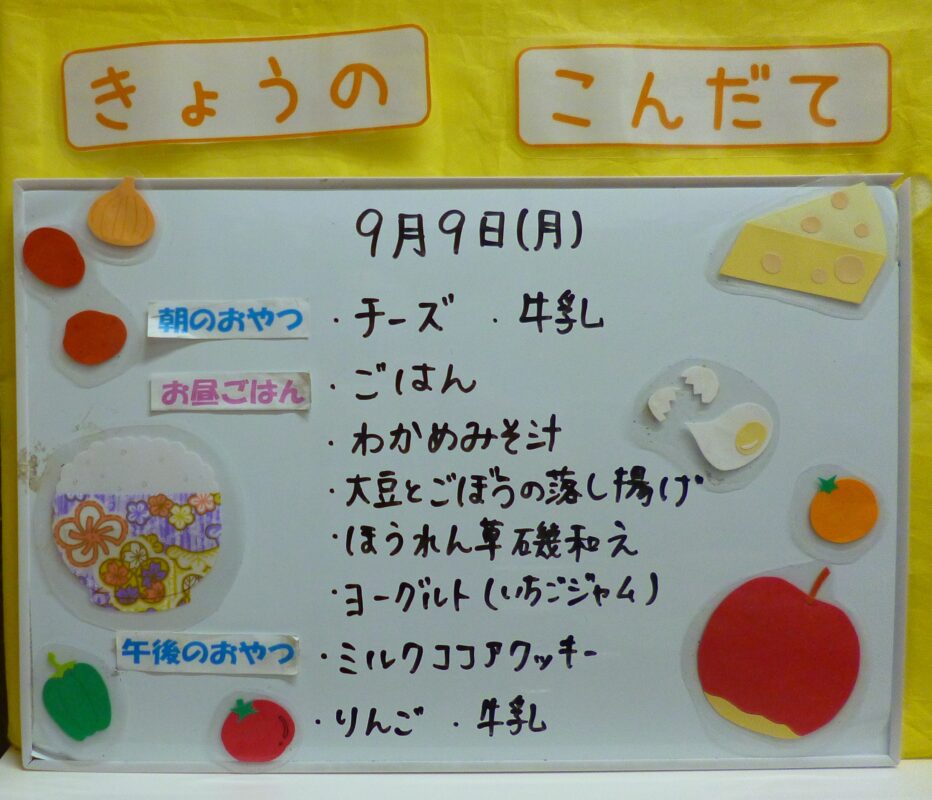 きょうの こんだて
9月9日(月)
朝のおやつ ・チーズ ・牛乳
お昼ごはん ・ごはん
・わかめみそ汁
・大豆とごぼうの落し揚げ
・ほうれん草磯和え
・ヨーグルト(いちごジャム)
午後のおやつ ・ミルクココアクッキー
・りんご ・牛乳